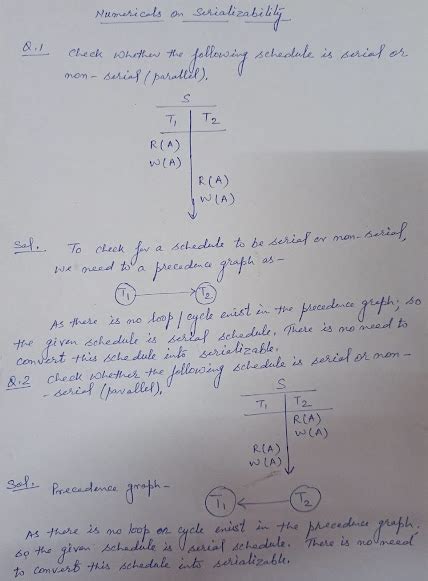 Numericals on Serializability
Q.1 Check whether the following schedule is serial or
non-serial (parallel).
S
T₁ T₂
R(A)
W(A)
R(A)
W(A)
Sol. To check for a schedule to be serial or non-serial,
we need to a precedence graph as-
T₁ T₂
As there is no loop / cycle exist in the precedence graph; so
the given schedule is serial schedule. There is no need to
convert this schedule into serializable.
Q.2 Check whether the following schedule is serial or non-
-serial (parallel).
S
T₁ T₂
R(A)
W(A)
R(A)
W(A)
Sol. Precedence graph-
T₁ T₂
As there is no loop or cycle exist in the precedence graph.
so the given schedule is serial schedule. There is no need
to convert this schedule into serializable.